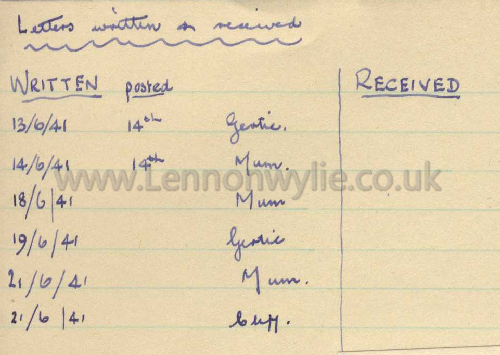 Letters written or received
WRITTEN posted RECEIVED
13/6/41 14th Gertie.
14/6/41 14th Mum.
www.Lennonwylie.co.uk
18/6/41 Mum
19/6/41 Gertie
21/6/41 Mum.
21/6/41 Cliff.